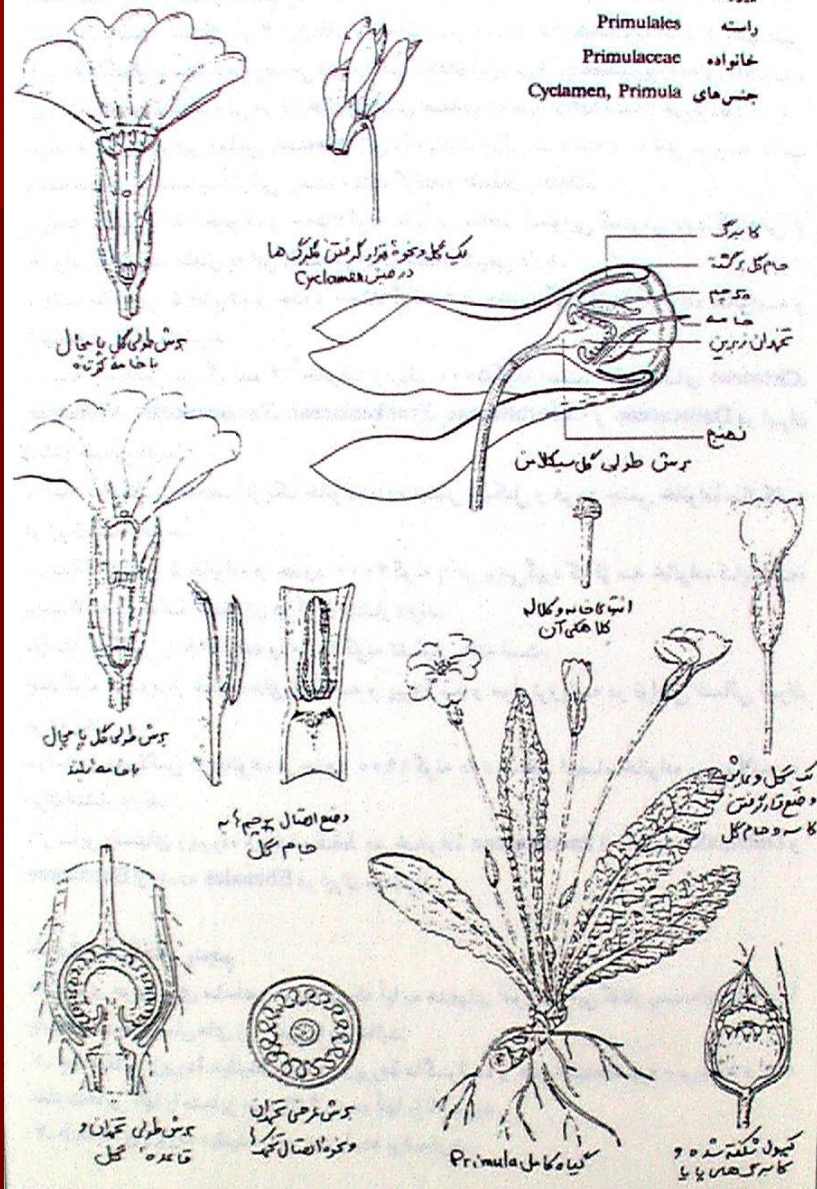 راسته Primulales
خانواده Primulaceae
جنس‌های Cyclamen, Primula
یک گل و نحوهٔ قرار گرفتن گلبرگ‌ها
در جنس Cyclamen
کاسبرگ
جام گل برگشته
پرچم
خامه
تخمدان زبرین
نهنج
برش طولی گل سیکلامن
برش طولی گل پامچال
با خامه کوتاه
برش طولی گل پامچال
با خامه بلند
وضع اتصال پرچم به
جام گل
انتهای خامه و کلاله
کلاهکی آن
یک گل و
وضع قرار گرفتن
کاسه و جام گل
برش طولی تخمدان و
قاعده گل
برش عرضی تخمدان
و نحوه اتصال تخمک‌ها
گیاه کامل Primula
کپسول شکفته شده و
کاسبرگ‌های پایا